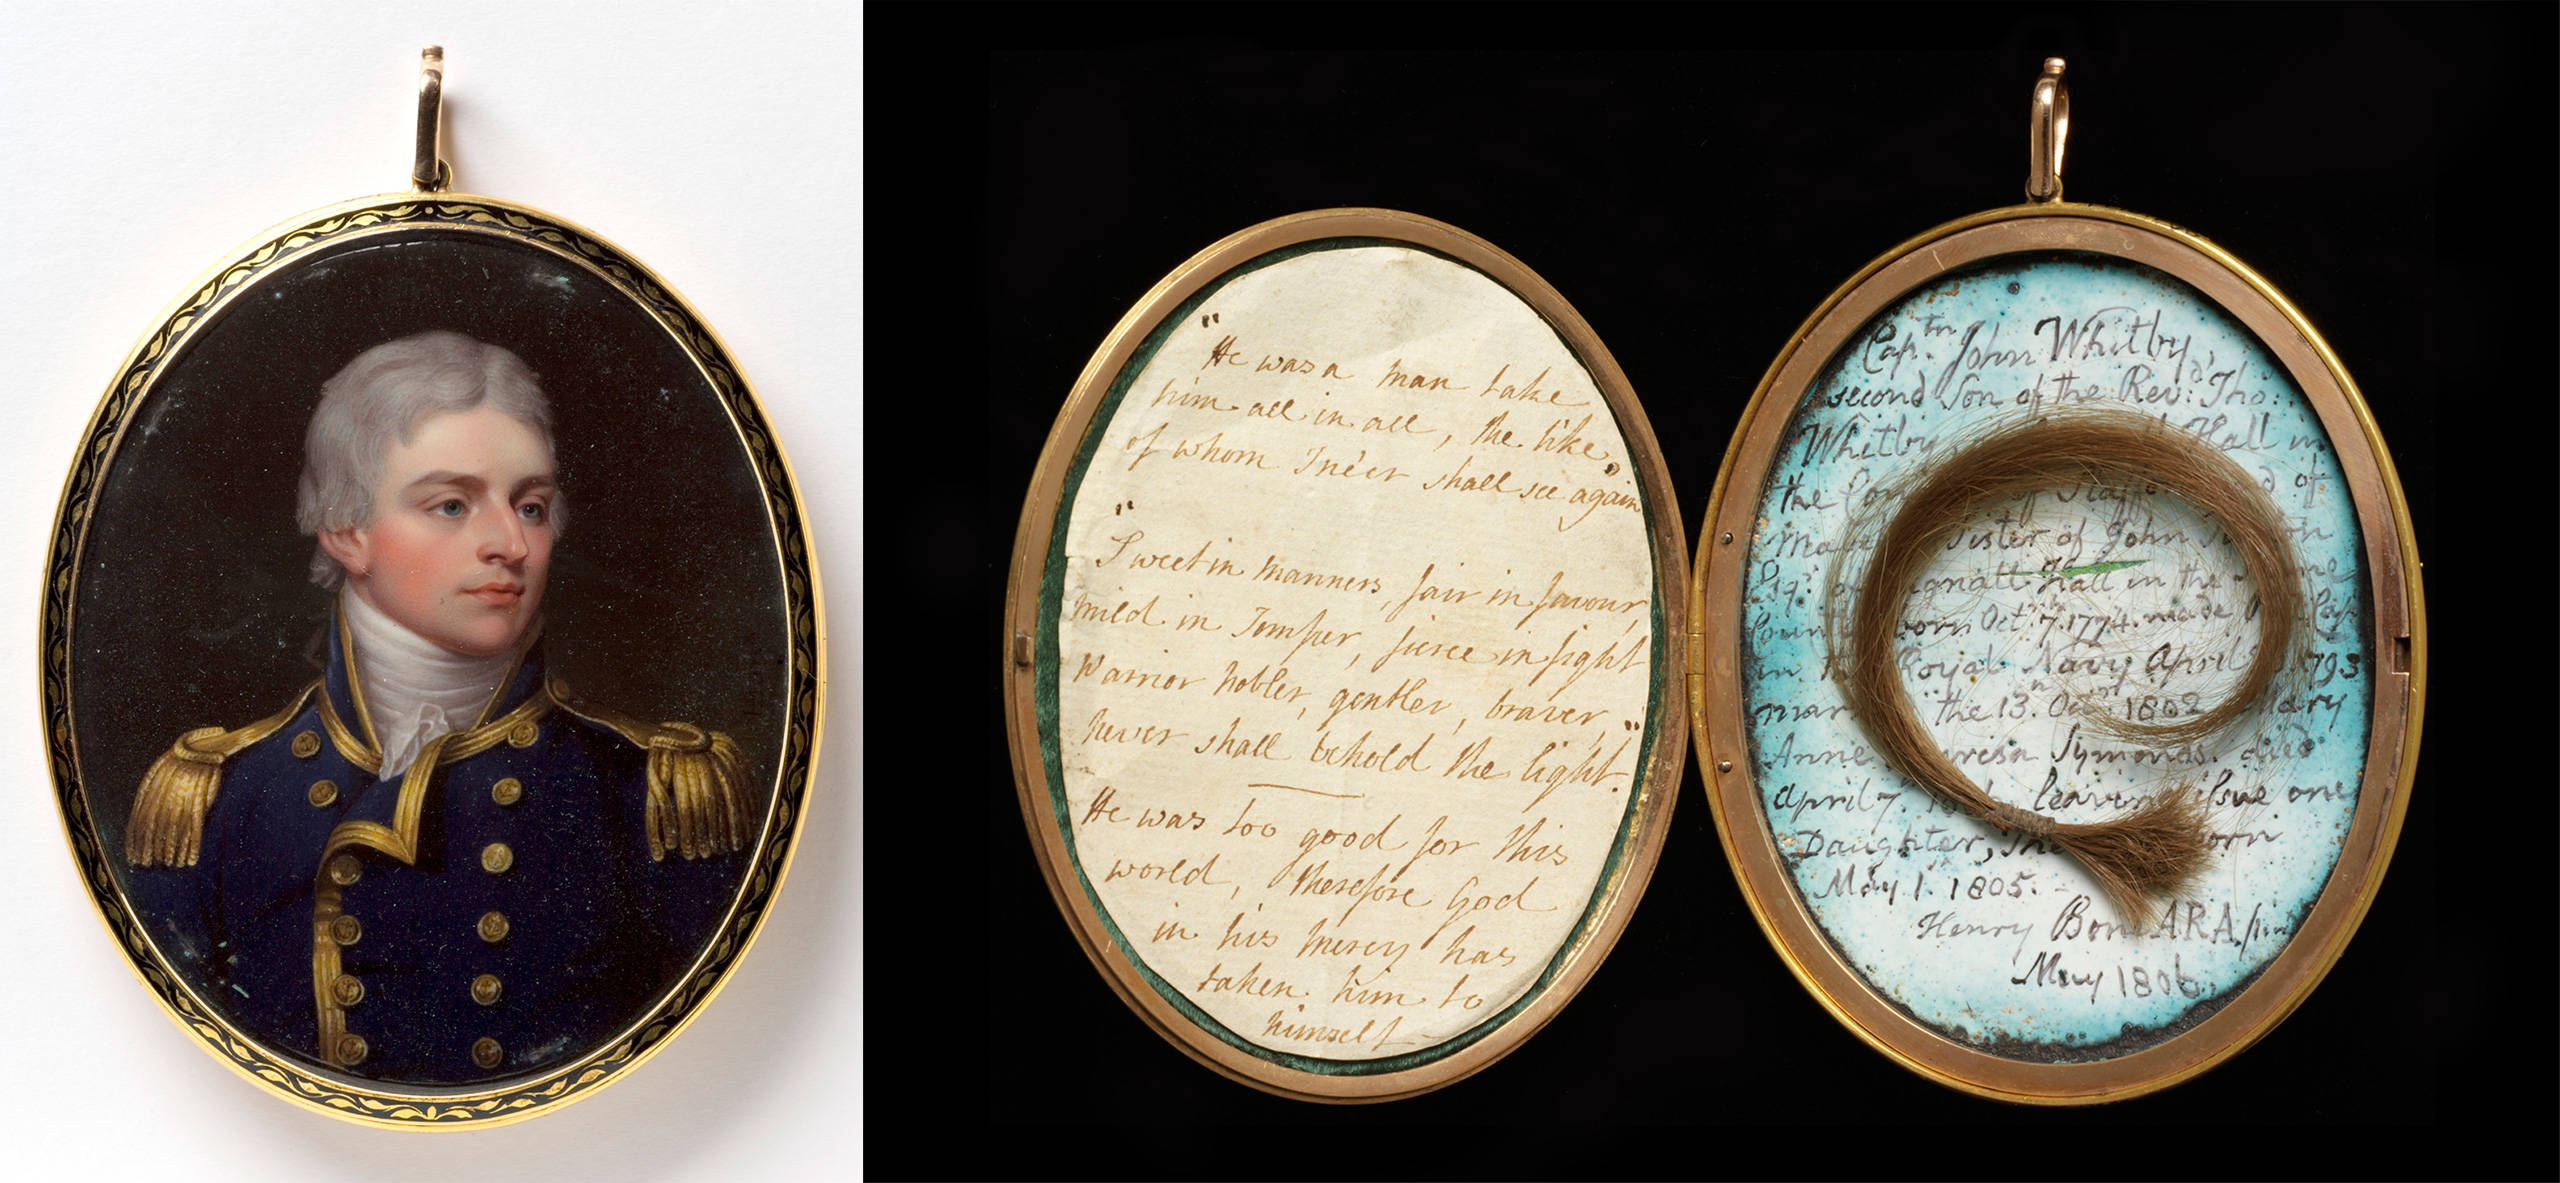 "
He was a man take
him all in all, the like
of whom I ne'er shall see again"
"
Sweet in manners, fair in favour,
mild in Temper, fierce in fight
Warrior nobler, gentler, braver,
never shall behold the light."
He was too good for this
world, therefore God
in his mercy has
taken him to
himself —
Captn John Whitby,
second Son of the Revd: Tho:
Whitby Hall in
the of
Sister of John
Esqr. of Hall in the
born Octr. 7th. 1774. made
in Royal Navy April 1793
the 13th. Octr. 1802
Anne Symonds. died
April 7. leaving issue one
Daughter,
May 1. 1805. -
Henry Bone ARA
May 1806.